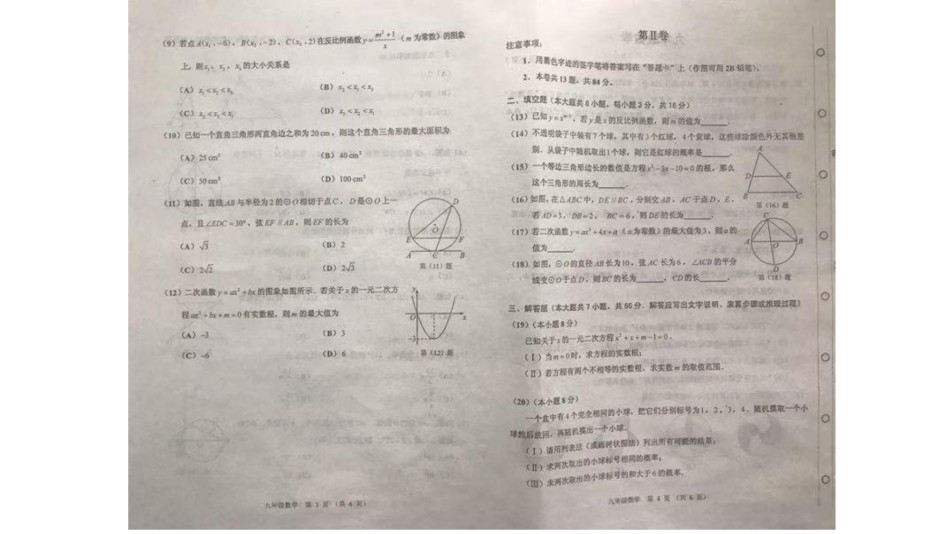 (9) 若点A(x₁,-6)，B(x₂,-2)，C(x₃,2)在反比例函数y=(m²+1)/x（m为常数）的图象
上，则x₁，x₂，x₃的大小关系是
(A) x₁<x₂<x₃ (B) x₂<x₁<x₃
(C) x₂<x₃<x₁ (D) x₃<x₂<x₁
(10) 已知一个直角三角形两直角边之和为20cm，则这个直角三角形的最大面积为
(A) 25cm² (B) 40cm²
(C) 50cm² (D) 100cm²
(11) 如图，直线AB与半径为2的⊙O相切于点C，D是⊙O上一
点，且∠EDC=30°，弦EF∥AB，则EF的长为
(A) √3 (B) 2
(C) 2√2 (D) 2√3
D
O
E F
A C B
第（11）题
(12) 二次函数y=ax²+bx的图象如图所示．若关于x的一元二次方
程ax²+bx+m=0有实数根，则m的最大值为
(A) -3 (B) 3
(C) -6 (D) 6
y
O x
-3
第（12）题
九年级数学 第 3 页（共 6 页）
第Ⅱ卷
注意事项：
1．用黑色字迹的签字笔将答案写在“答题卡”上（作图可用2B铅笔）．
2．本卷共13题，共84分．
二、填空题（本大题共6小题，每小题3分，共18分）
(13) 已知y=x^(m-1)，若y是x的反比例函数，则m的值为______．
(14) 不透明袋子中装有7个球，其中有3个红球，4个黄球，这些球除颜色外无其他差
别．从袋子中随机取出1个球，则它是红球的概率是______．
(15) 一个等边三角形边长的数值是方程x²-3x-10=0的根，那么
这个三角形的周长为______．
(16) 如图，在△ABC中，DE∥BC，分别交AB，AC于点D，E．
若AD=3，DB=2，BC=6，则DE的长为______．
A
D E
B C
第（16）题
(17) 若二次函数y=ax²+4x+a（a为常数）的最大值为3，则a的
值为______．
(18) 如图，⊙O的直径AB长为10，弦AC长为6，∠ACB的平分
线交⊙O于点D，则BC的长为______，CD的长______．
C
A O B
D
第（18）题
三、解答题（本大题共7小题，共66分．解答应写出文字说明、演算步骤或推理过程）
(19)（本小题8分）
已知关于x的一元二次方程x²+x+m-1=0．
（Ⅰ）当m=0时，求方程的实数根；
（Ⅱ）若方程有两个不相等的实数根，求实数m的取值范围．
(20)（本小题8分）
一个盒中有4个完全相同的小球，把它们分别标号为1，2，3，4，随机摸取一个小
球然后放回，再随机摸出一个小球．
（Ⅰ）请用列表法（或画树状图法）列出所有可能的结果；
（Ⅱ）求两次取出的小球标号相同的概率；
（Ⅲ）求两次取出的小球标号的和大于6的概率．
九年级数学 第 4 页（共 6 页）